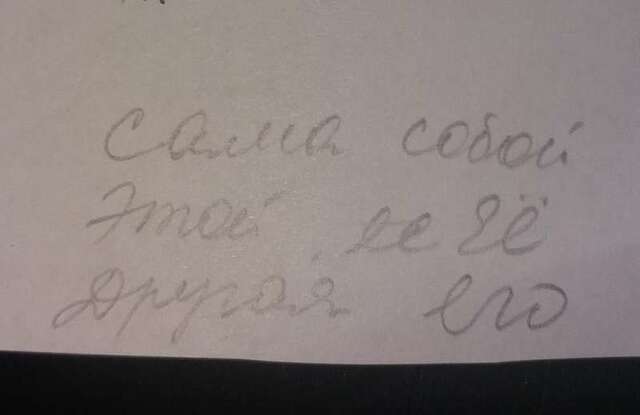 сама собой
этой ее Её
другая его